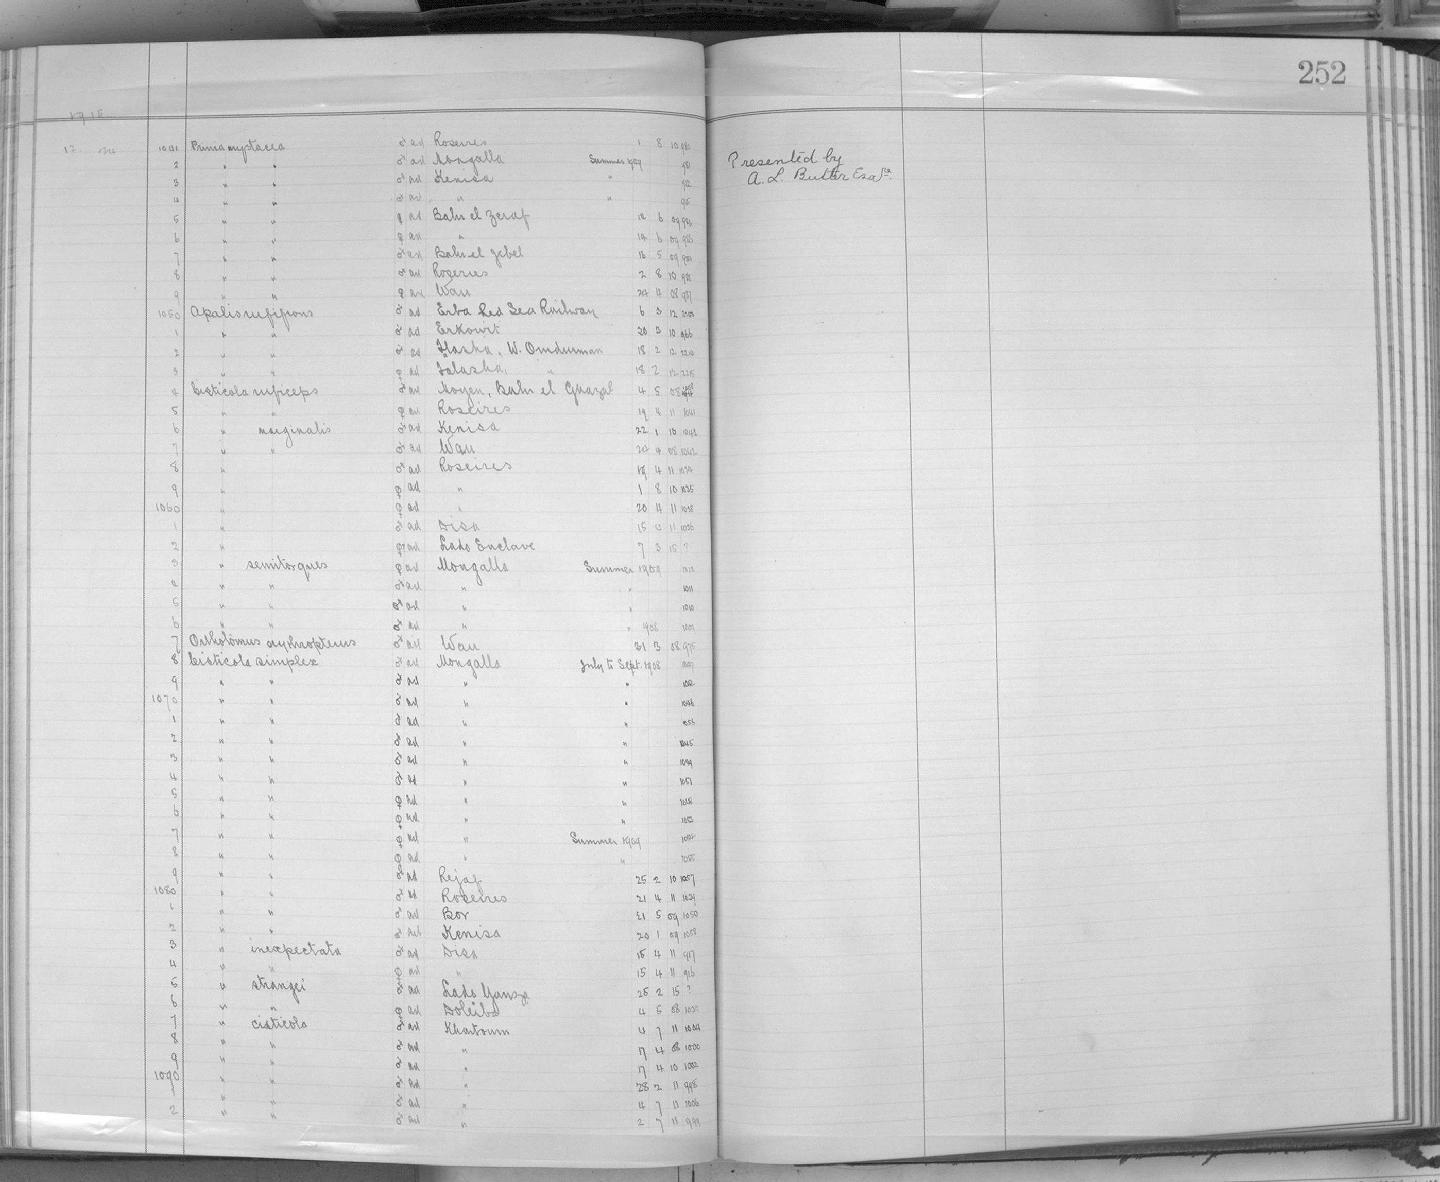 252
1915
12
1041 Prinia mystacea ♂ ad Roseires 1 8 10
2 " " ♂ ad Mongalla Summer 1909
3 " " ♂ ad Kenisa "
4 " " ♂ ad " "
5 " " ♀ ad Bahr el Zeraf 12 6 09
6 " " ♀ ad " 14 6 09
7 " " ♂ ad Bahr el Jebel 16 5 09
8 " " ♂ ad Rogeries 2 8 10
9 " " ♀ ad Wau 24 4 08
1050 Apalis rufifrons ♂ ad Erba Red Sea Railway 6 3 12
1 " " ♂ ad Erkowit 20 3 10 966
2 " " ♂ ad W. Omdurman 18 2 12
3 " " ♀ ad " 18 2 12
4 Cisticola ruficeps ♂ ad Moyen, Bahr el Ghazal 4 5 08
5 " " ♀ ad Roseires 19 4 11 1041
6 " marginalis ♂ ad Kenisa 22 1 10 1042
7 " " ♂ ad Wau 24 4 08
8 " ♂ ad Roseires 18 4 11 1034
9 " ♀ ad " 1 8 10 1035
1060 " ♀ ad " 20 4 11 1038
1 " ♂ ad Disa 15 4 11 1036
2 " ad Lado Enclave 7 3 15 ?
3 " semitorques ♀ ad Mongalla Summer 1909 1012
4 " " ♂ ad " " 1011
5 " " ♂ ad " " 1010
6 " " ♂ ad " " 1908 1009
7 Ortholomus erythropterus ♂ ad Wau 31 3 08 975
8 Cisticola simplex ♂ ad Mongalla July to Sept. 1908
9 " " ♂ ad " "
1070 " " ♂ ad " " 1046
1 " " ♂ ad " "
2 " " ♂ ad " " 1045
3 " " ♂ ad " " 1049
4 " " ♂ ad " " 1051
5 " " ♀ ad " " 1048
6 " " ♀ ad " "
7 " " ♀ ad " Summer 1909
8 " " ♀ ad " " 1055
9 " " ♂ ad Rejaf 25 2 10 1057
1080 " " ♂ ad Roseires 21 4 11
1 " " ♂ ad Bor 21 5 09 1050
2 " " ♂ ad Kenisa 20 1 09 1058
3 " inexpectata ♂ ad Disa 15 4 11 917
4 " " ♀ ad " 15 4 11 916
5 " strangei ♂ ad Lado 25 2 15 ?
6 " " ♀ ad Doleibo 4 5 08
7 " cisticola ♂ ad Khartoum 4 7 11 1004
8 " " ♂ ad " 17 4 08 1000
9 " " ♂ ad " 17 4 10 1002
1090 " " ♂ ad " 28 2 11 998
1 " " ♂ ad " 4 7 11 1006
2 " " ♂ ad " 2 7 11 999
Presented by
A. L. Butler Esqre.